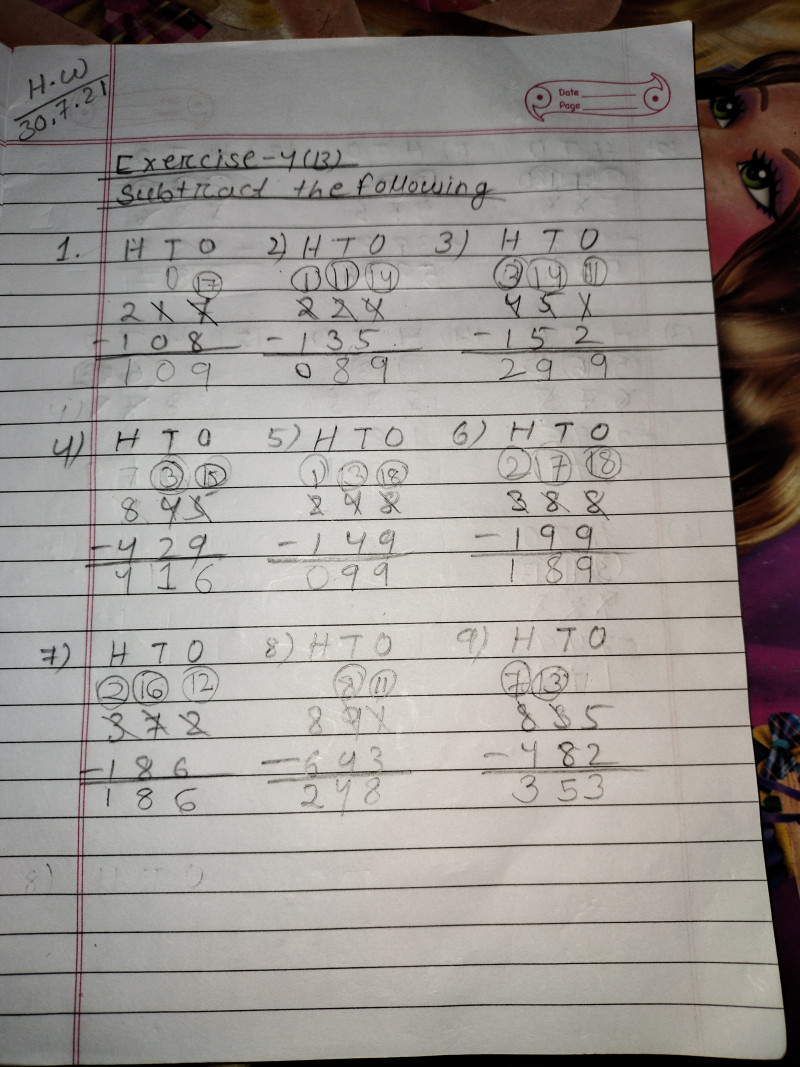 H.W
30.7.21
Date
Page
Exercise-4(B)
Subtract the following
1. H T O 2) H T O 3) H T O
0 17 1 11 14 3 14 11
2 1 7 2 2 4 4 5 1
- 1 0 8 - 1 3 5 - 1 5 2
1 0 9 0 8 9 2 9 9
4) H T O 5) H T O 6) H T O
7 3 15 1 13 18 2 17 18
8 4 5 2 4 8 3 8 8
- 4 2 9 - 1 4 9 - 1 9 9
4 1 6 0 9 9 1 8 9
7) H T O 8) H T O 9) H T O
2 16 12 8 11 7 13
3 7 2 8 9 1 8 3 5
- 1 8 6 - 6 4 3 - 4 8 2
1 8 6 2 4 8 3 5 3
8) H T O